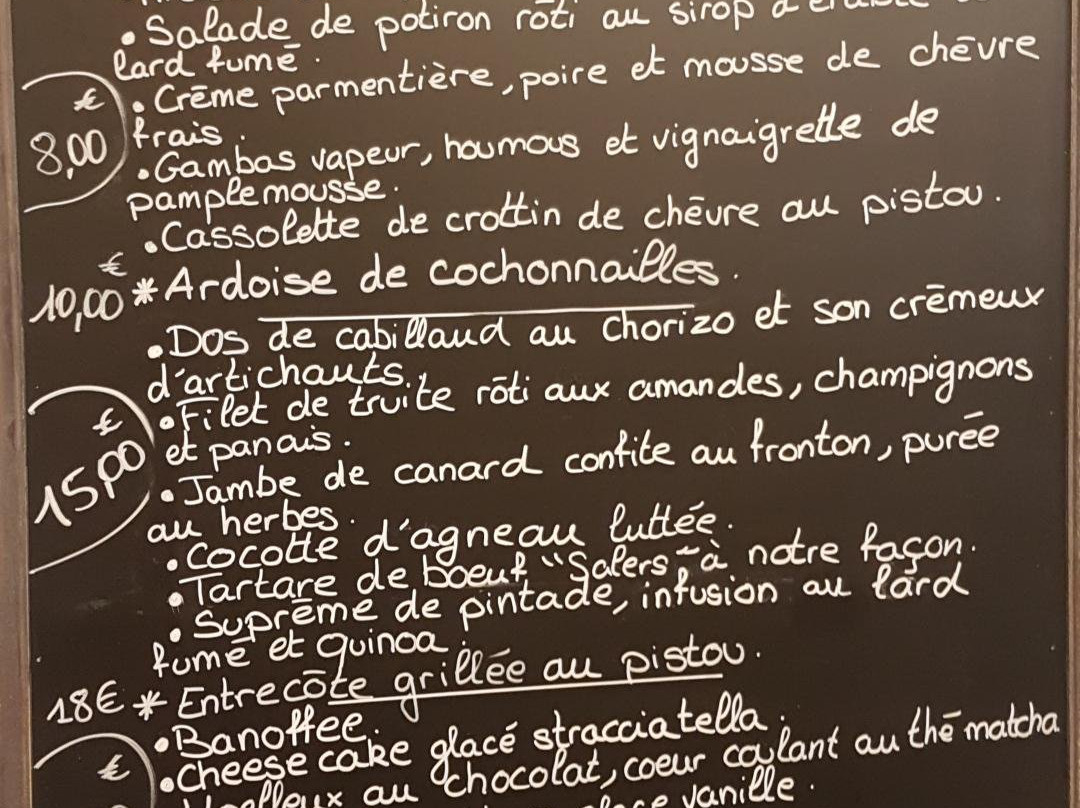 • Salade de potiron rôti au sirop d'érable
lard fumé.
€ • Crème parmentière, poire et mousse de chèvre
8,00 frais.
• Gambas vapeur, houmous et vignaigrette de
pamplemousse.
• Cassolette de crottin de chèvre au pistou.
€
10,00 * Ardoise de cochonnailles.
• Dos de cabillaud au Chorizo et son crèmeux
d'artichauts.
€ • Filet de truite rôti aux amandes, champignons
15,00 et panais.
• Jambe de canard confite au fronton, purée
au herbes.
• Cocotte d'agneau luttée.
• Tartare de boeuf "Salers" à notre façon.
• Suprême de pintade, infusion au lard
fumé et quinoa.
18€ * Entrecôte grillée au pistou.
• Banoffee.
€ • Cheese cake glacé stracciatella.
au chocolat, coeur coulant au thé matcha
vanille.